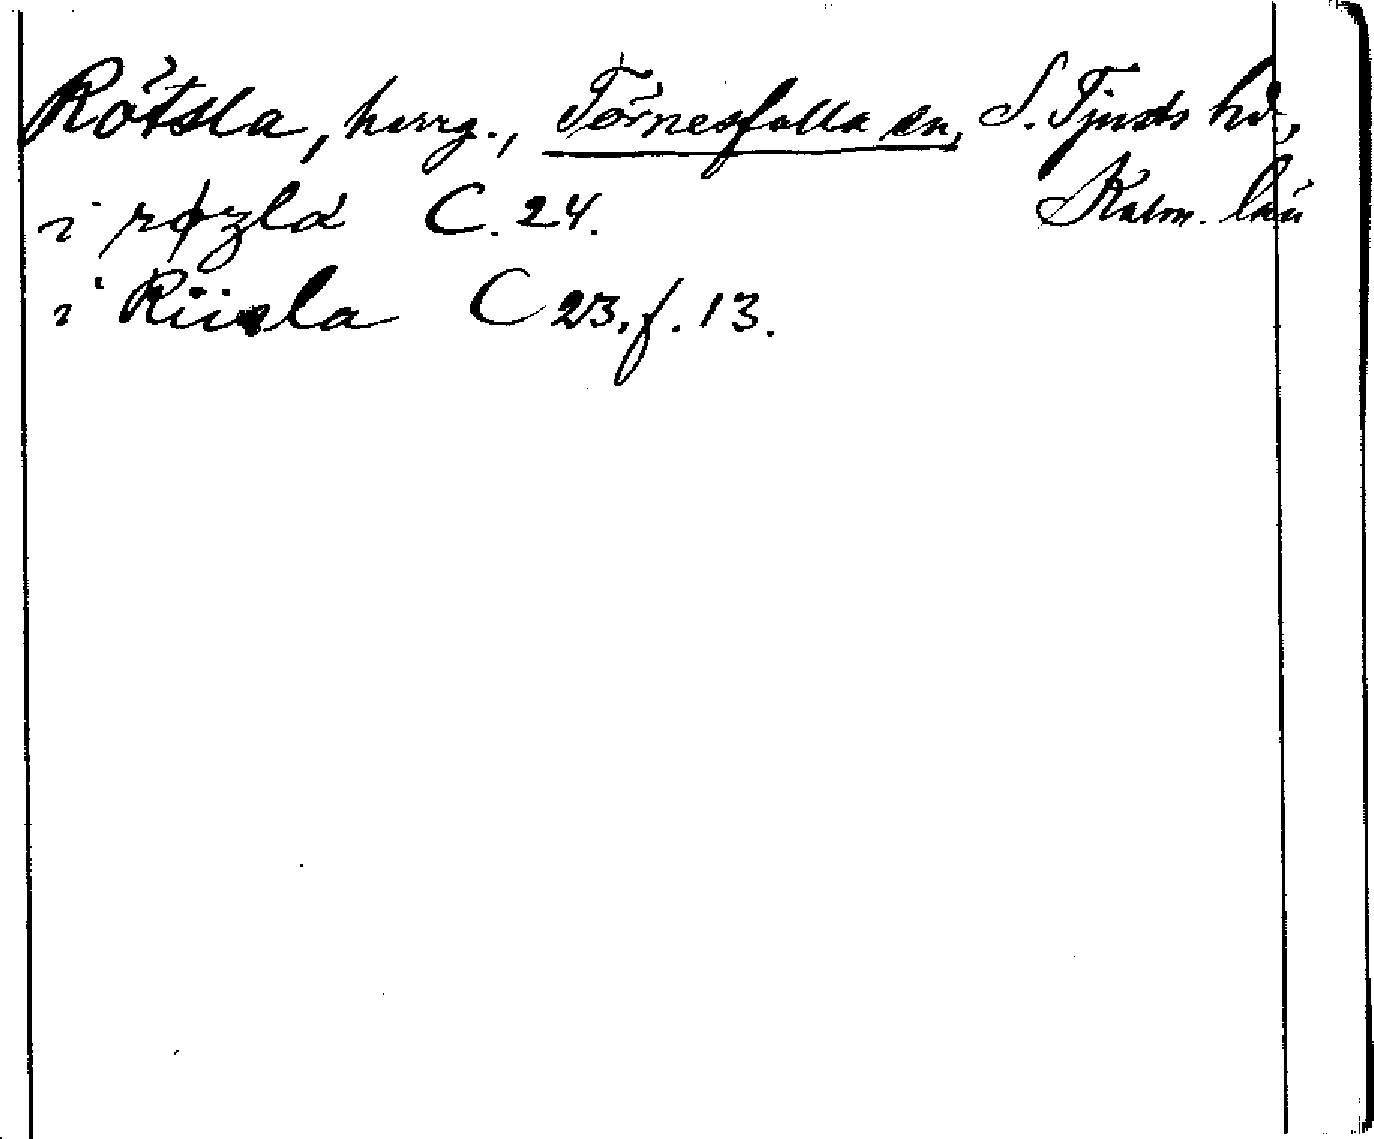 Rötsla, herrg., Törnesfalla sn, S. Tjusts hd,
Kalm. län
i røzla C. 24.
i Riisla C 23, f. 13.